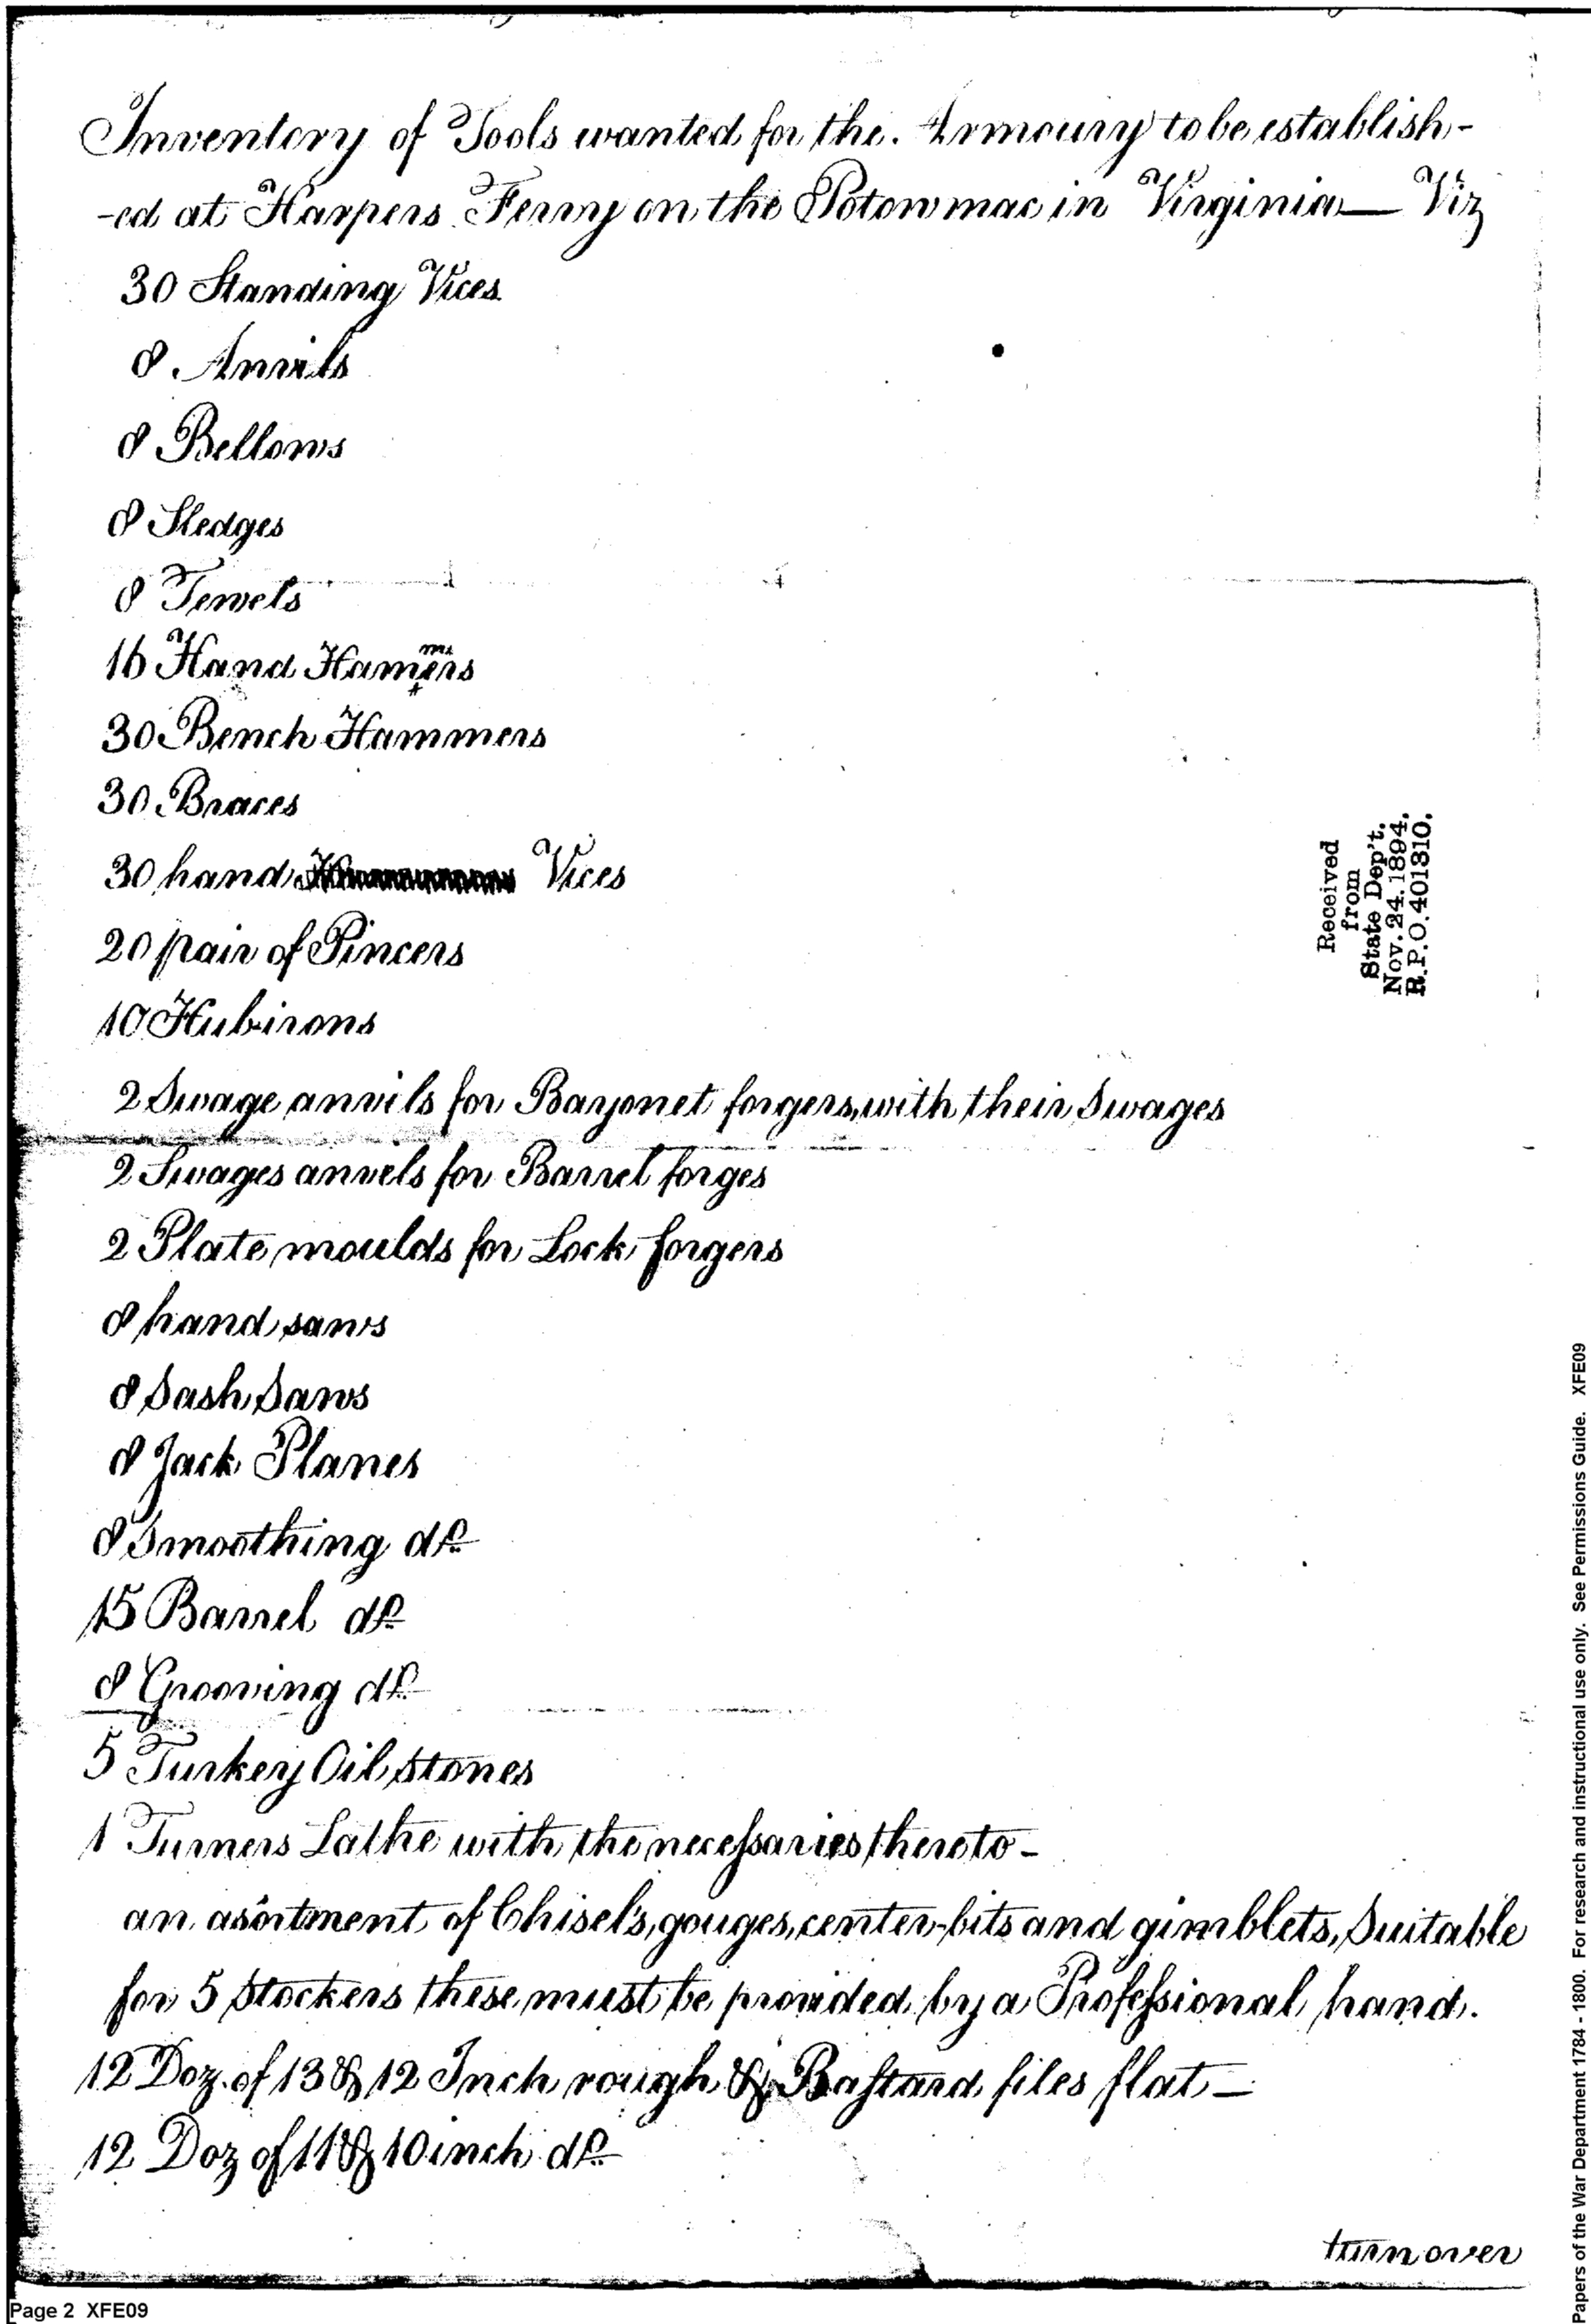 Inventory of Tools wanted for the. Armoury to be establish-
-ed at Harpers Ferry on the Potowmac in Virginia — Viz
30 Standing Vices
8 Anvils
8 Bellows
8 Sledges
8 Tewels
16 Hand Hamers
mm
30 Bench Hammers
30 Braces
30 hand Vices
20 pair of Pincers
10 Hubirons
2 Swage anvils for Bayonet forgers, with their Swages
2 Swages anvels for Barrel forges
2 Plate moulds for Lock forgers
8 hand saws
8 Sash Saws
8 Jack Planes
8 Smoothing do
15 Barrel do
8 Grooving do
5 Turkey Oil stones
1 Turners Lathe with the necessaries thereto -
an asortment of Chisels, gouges, center-bits and gimblets, Suitable
for 5 Stockers these must be provided by a Professional hand.
12 Doz. of 13 & 12 Inch rough & Bastard files flat —
12 Doz of 11 & 10 inch do
turn over
Received
from
State Dep't.
Nov. 24. 1894.
R.P.O. 401310.
Papers of the War Department 1784 - 1800. For research and instructional use only. See Permissions Guide. XFE09
Page 2 XFE09